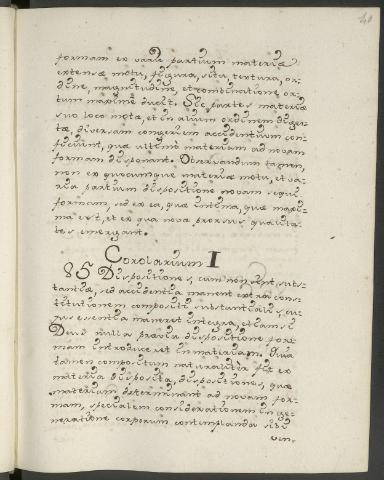 40
formam ex varie partium materiæ
extensæ motu, figura, situ, textura, or-
dine, magnitudine, et combinatione or-
tum maxime ducit. Sic partes materiæ
suo loco motæ, et in alium ordinem diges-
tæ, diversam congeriem accidentium con-
ficiunt, quæ ultimo materiam ad novam
formam disponant. Observandum tamen,
non ex quocumque materiæ motu, et va-
ria partium dispositione novam sequi
formam, sed ex ea, quæ intima, quæ maxi-
ma est, et ex qua nova prorsus qualita-
tes emergant.
Corolarium I
85 Dispositiones, cum non sint subs-
tantiæ, sed accidentia manent extra cons-
titutionem compositi substantialis, cu-
jus essentia maneret integra, etiamsi
Deus nulla prævia dispositione for-
mam introduceret in materiam. Quia
tamen compositum naturaliter fit ex
materia disposita, dispositiones, quæ
materiam determinant ad novam for-
mam, specialem considerationem in ge-
neratione corporum contemplanda sibi
vin-